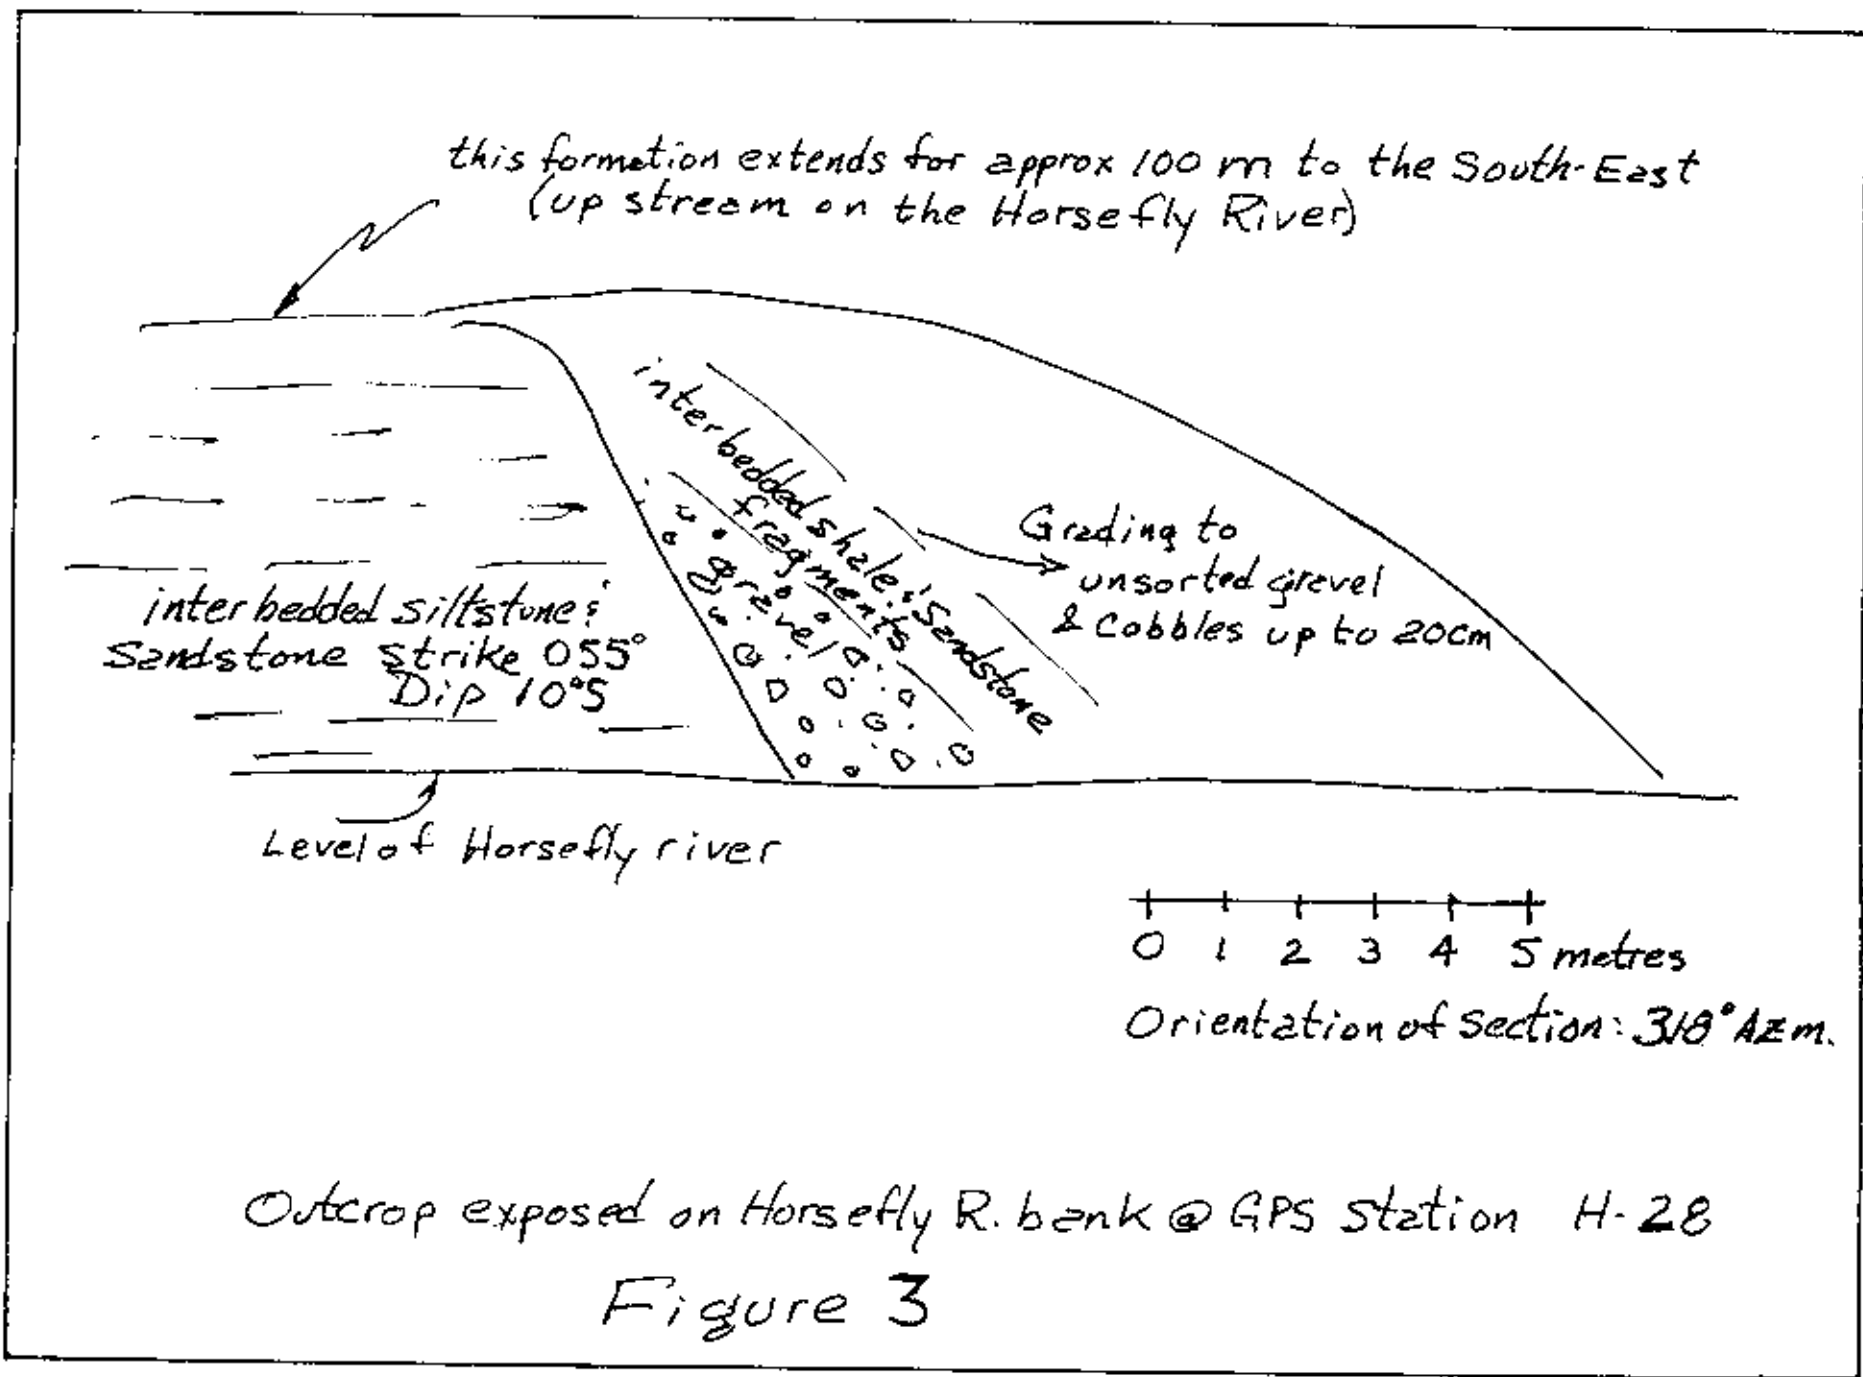 this formation extends for approx 100 m to the South-East
(up stream on the Horsefly River)
interbedded shale & Sandstone
fragments
gravel
Grading to
unsorted gravel
& Cobbles up to 20cm
interbedded siltstone &
Sandstone strike 055°
Dip 10°S
Level of Horsefly river
0 1 2 3 4 5 metres
Orientation of Section: 318° AZm.
Outcrop exposed on Horsefly R. bank @ GPS Station H-28
Figure 3